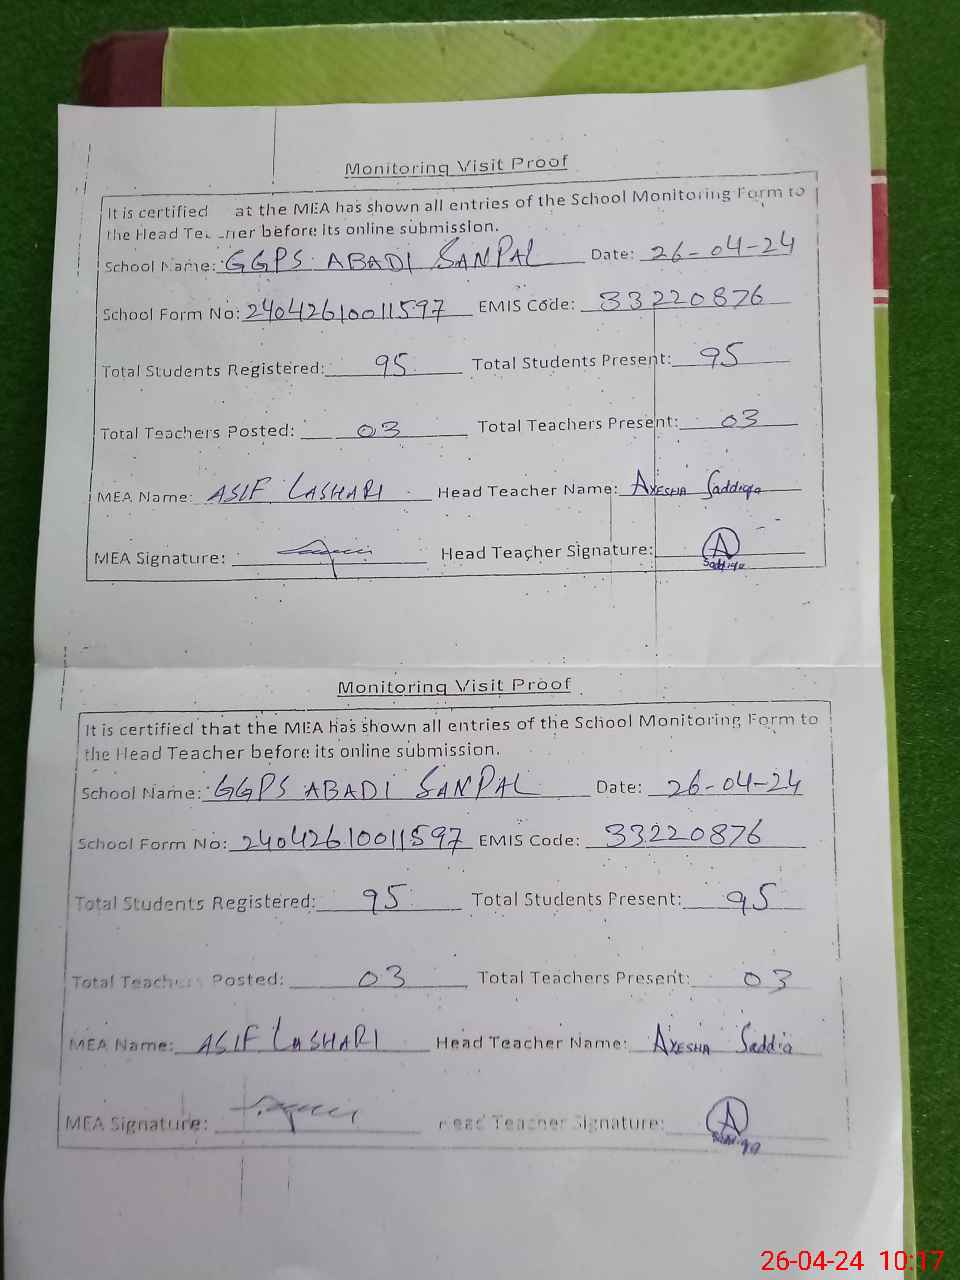 Monitoring Visit Proof
It is certified at the MEA has shown all entries of the School Monitoring Form to
the Head Te ner before its online submission.
School Name: GGPS ABADI SANPAL Date: 26-04-24
School Form No: 24042610011597 EMIS Code: 33220876
Total Students Registered: 95 Total Students Present: 95
Total Teachers Posted: 03 Total Teachers Present: 03
MEA Name: ASIF LASHARI Head Teacher Name: AYESHA Saddiqa
MEA Signature: Head Teacher Signature: A
Saddiqa
Monitoring Visit Proof
It is certified that the MEA has shown all entries of the School Monitoring Form to
the Head Teacher before its online submission.
School Name: GGPS ABADI SANPAL Date: 26-04-24
School Form No: 24042610011597 EMIS Code: 33220876
Total Students Registered: 95 Total Students Present: 95
Total Teachers Posted: 03 Total Teachers Present: 03
MEA Name: ASIF LASHARI Head Teacher Name: AYESHA Saddia
MEA Signature: Head Teacher Signature: A
Saddiqa
26-04-24 10:17